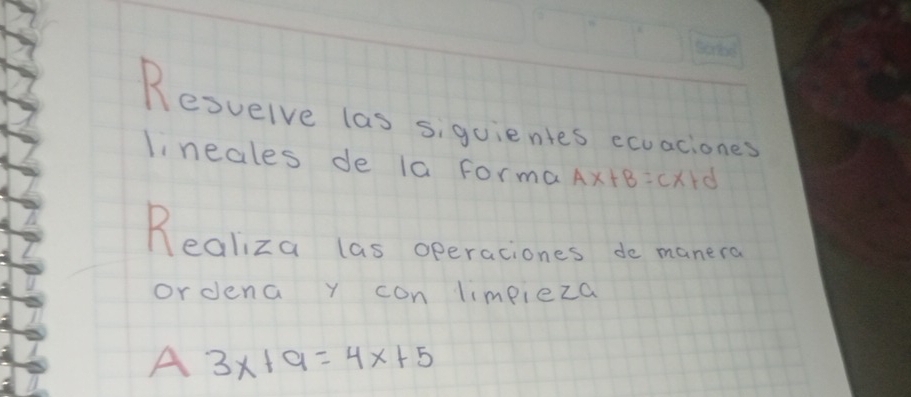 Resuelve las siguientes ecuaciones
lineales de la Forma Ax+B=cx+d
Realiza las operaciones de manera
ordena y con limpieza
A 3x+9=4x+5